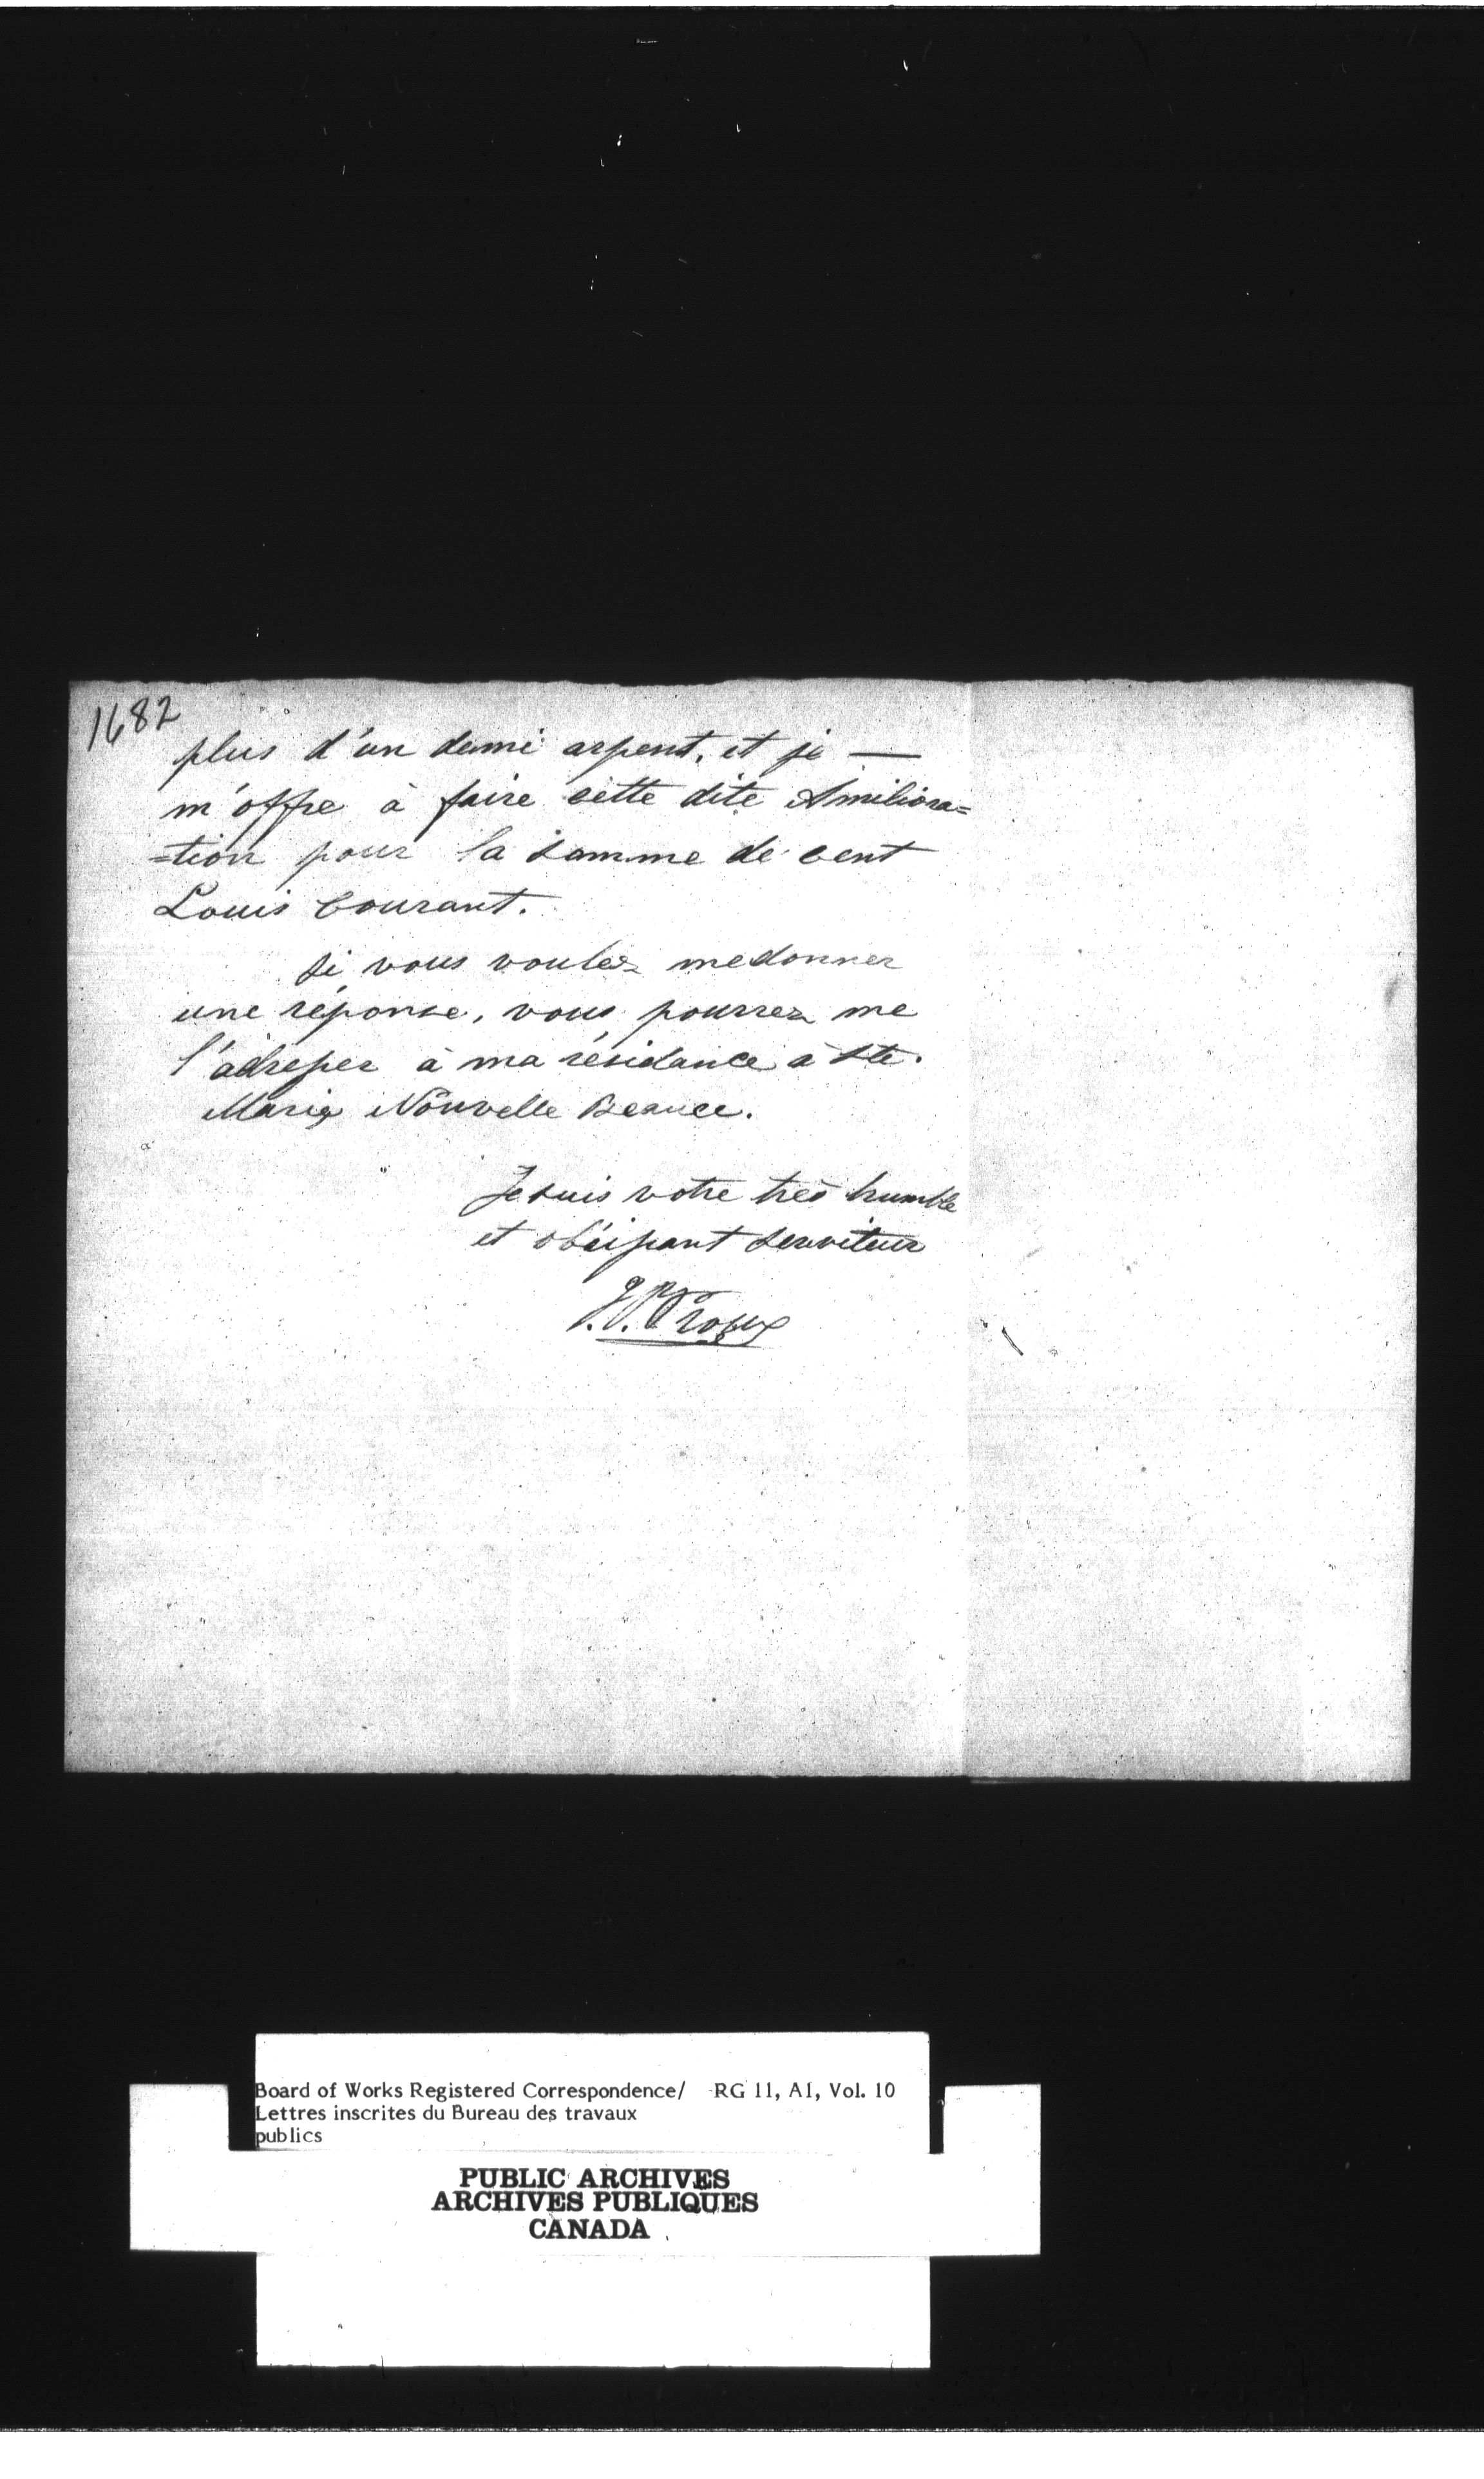 1682
plus d'un demi arpent, et je —
m'offre à faire cette dite Amiliora=
=tion pour la somme de cent
Louis Courant.
Si vous voulez me donner
une réponse, vous pourrez me
l'adresser à ma résidance à Ste.
Marie Nouvelle Beauce.
Je suis votre très humble
et obéissant serviteur
J. P. Proulx
Board of Works Registered Correspondence/ RG 11, A1, Vol. 10
Lettres inscrites du Bureau des travaux
publics
PUBLIC ARCHIVES
ARCHIVES PUBLIQUES
CANADA